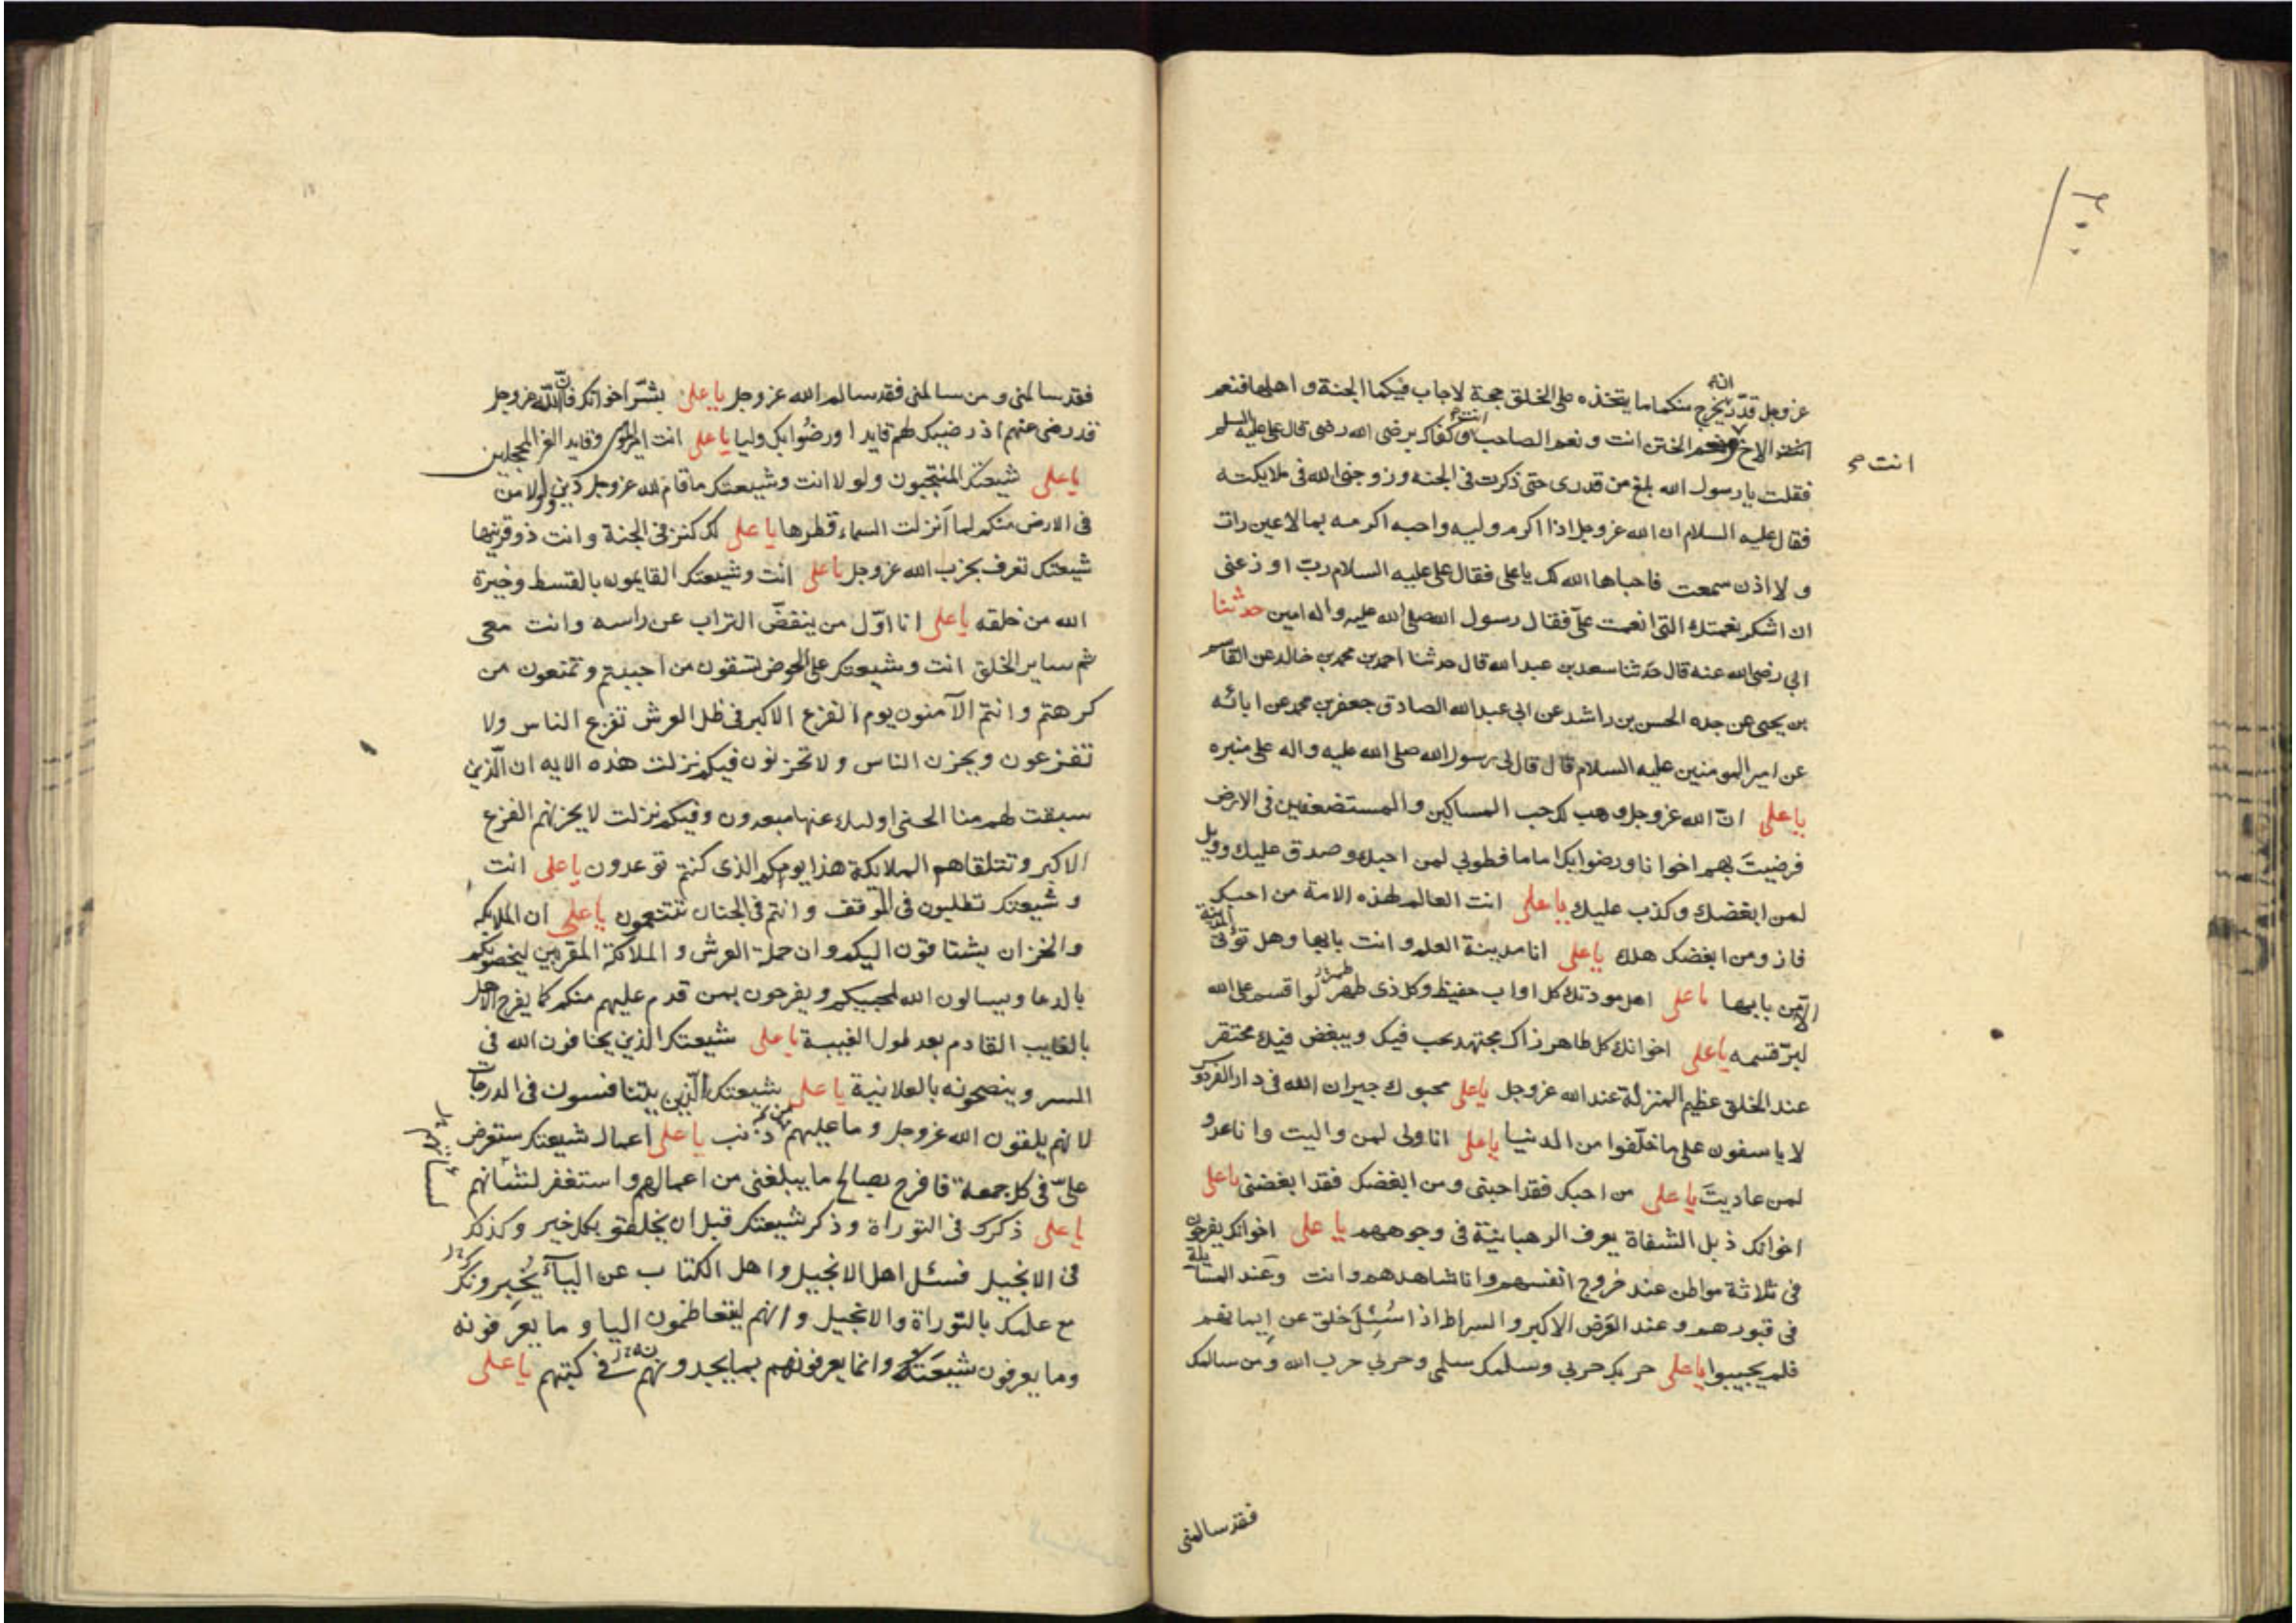 انه
عز وجل قدّر يخرج منكما ما يتخذه على الخلق حجة لاجاب فيكما الجنة و اهلها فنعم
الاخ ونعم الختن انت و نعم الصاحب انت وكفاك برضى الله رضى قال على عليه السلم
انت صح
فقلت يا رسول الله بلغ من قدرى حتى ذكرت فى الجنه وزوجنى الله فى ملايكته
فقال عليه السلام ان الله عز وجل اذا اكرم وليه واحبه اكرمه بما لا عين رات
و لا اذن سمعت فاحباها الله لك يا على فقال على عليه السلام رب اوزعنى
ان اشكر نعمتك التى انعمت علىّ فقال رسول الله صلى الله عليه واله امين حدثنا
ابى رضى الله عنه قال حدثنا سعد بن عبد الله قال حدثنا احمد بن محمد بن خالد عن القاسم
بن يحيى عن جده الحسن بن راشد عن ابى عبد الله الصادق جعفر بن محمد عن ابائه
عن امير المومنين عليه السلام قال قال لى رسول الله صلى الله عليه واله على منبره
يا على انّ الله عز وجل وهب لك حب المساكين والمستضعفين فى الارض
فرضيتَ بهم اخوانا ورضوا بك اماما فطوبى لمن احبك وصدق عليك وويل
لمن ابغضك وكذب عليك يا على انت العالم لهذه الامة من احبك
فاز ومن ابغضك هلك يا على انا مدينة العلم و انت بابها وهل تؤتى المدينة
الا من بابها يا على اهل مودتك كل اواب حفيظ وكل ذى طمر لو اقسم على الله
لبرّ قسمه يا على اخوانك كل طاهر زاك مجتهد يحب فيك ويبغض فيك محتقر
عند الخلق عظيم المنزلة عند الله عز وجل يا على محبوك جيران الله فى دار الفردوس
لا ياسفون على ما خلّفوا من الدنيا يا على انا ولى لمن واليت وانا عدو
لمن عاديتَ يا على من احبك فقد احبنى ومن ابغضك فقد ابغضنى يا على
اخوانك ذبل الشفاة يعرف الرهبانية فى وجوههم يا على اخوانك يفرحون
فى ثلاثة مواطن عند خروج انفسهم وانا شاهدهم وانت وعند المسآيلة
فى قبورهم وعند العَرض الاكبر والسراط اذا سُئِلَ خلق عن إيمانهم
فلم يجيبوا يا على حربك حربى وسلمك سلمى وحربى حرب الله ومن سالمك
فقد سالمنى
فقد سالمنى ومن سالمنى فقد سالم الله عز وجل يا على بشّر اخوانك فانّ الله عز وجل
قد رضى عنهم اذ رضيك لهم قايدا ورضُوا بك وليا يا على انت امير المومنين وقايد الغر المحجلين
يا على شيعتك المنتجبون ولو لا انت وشيعتك ما قام لله عز وجل دين ولو لا من
فى الارض منكم لما اَنزلت السماء قطرها يا على لك كنز فى الجنة وانت ذو قرنيها
شيعتك تعرف بحزب الله عز وجل يا على انت وشيعتك القايمون بالقسط وخيرة
الله من خلقه يا على انا اوّل من ينفضّ التراب عن راسه وانت معى
ثم ساير الخلق انت وشيعتك على الحوض تسقون من احببتم وتمنعون من
كرهتم وانتم الآمنون يوم الفزع الاكبر فى ظل العرش تفزع الناس ولا
تفزعون ويحزن الناس ولا تحزنون فيكم نزلت هذه الايه ان الّذين
سبقت لهم منا الحسنى اولىك عنها مبعدون وفيكم نزلت لا يحزنهم الفزع
الاكبر وتتلقاهم الملائكة هذا يومكم الذى كنتم توعدون يا على انت
وشيعتك تطلبون فى الموقف وانتم فى الجنان تتنعمون يا على ان الملائكه
والخزان يشتاقون اليكم وان حملة العرش والملائكة المقربين ليخصونكم
بالدعا ويسالون الله لمحبيكم ويفرحون بمن قدم عليهم منكم كما يفرح الاهل
بالغايب القادم بعد طول الغيبة يا على شيعتك الذين يخافون الله فى
السر وينصحونه بالعلانية يا على شيعتك الّذين يتنافسون فى الدرجات
لانهم يلقون الله عز وجل وما عليهم من ذنب يا على اعمال شيعتك ستعرض
علىّ فى كل جمعة فافرح بصالح ما يبلغنى من اعمالهم واستغفر لشأنهم
يا على ذكرك فى التوراة وذكر شيعتك قبل ان يخلقو بكل خير وكذلك
فى الانجيل فسئل اهل الانجيل واهل الكتاب عن اليآ يُخبِرونك
مع علمك بالتوراة والانجيل وانهم ليتعاظمون اليا وما يعرفونه
وما يعرفون شيعَتَك وانما يعرفونهم بما يجدونهم فى كتبهم يا على